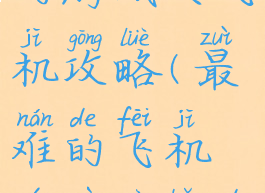 jī gōng lüè zuì
机攻略(最
nán de fēi jī
难的飞机